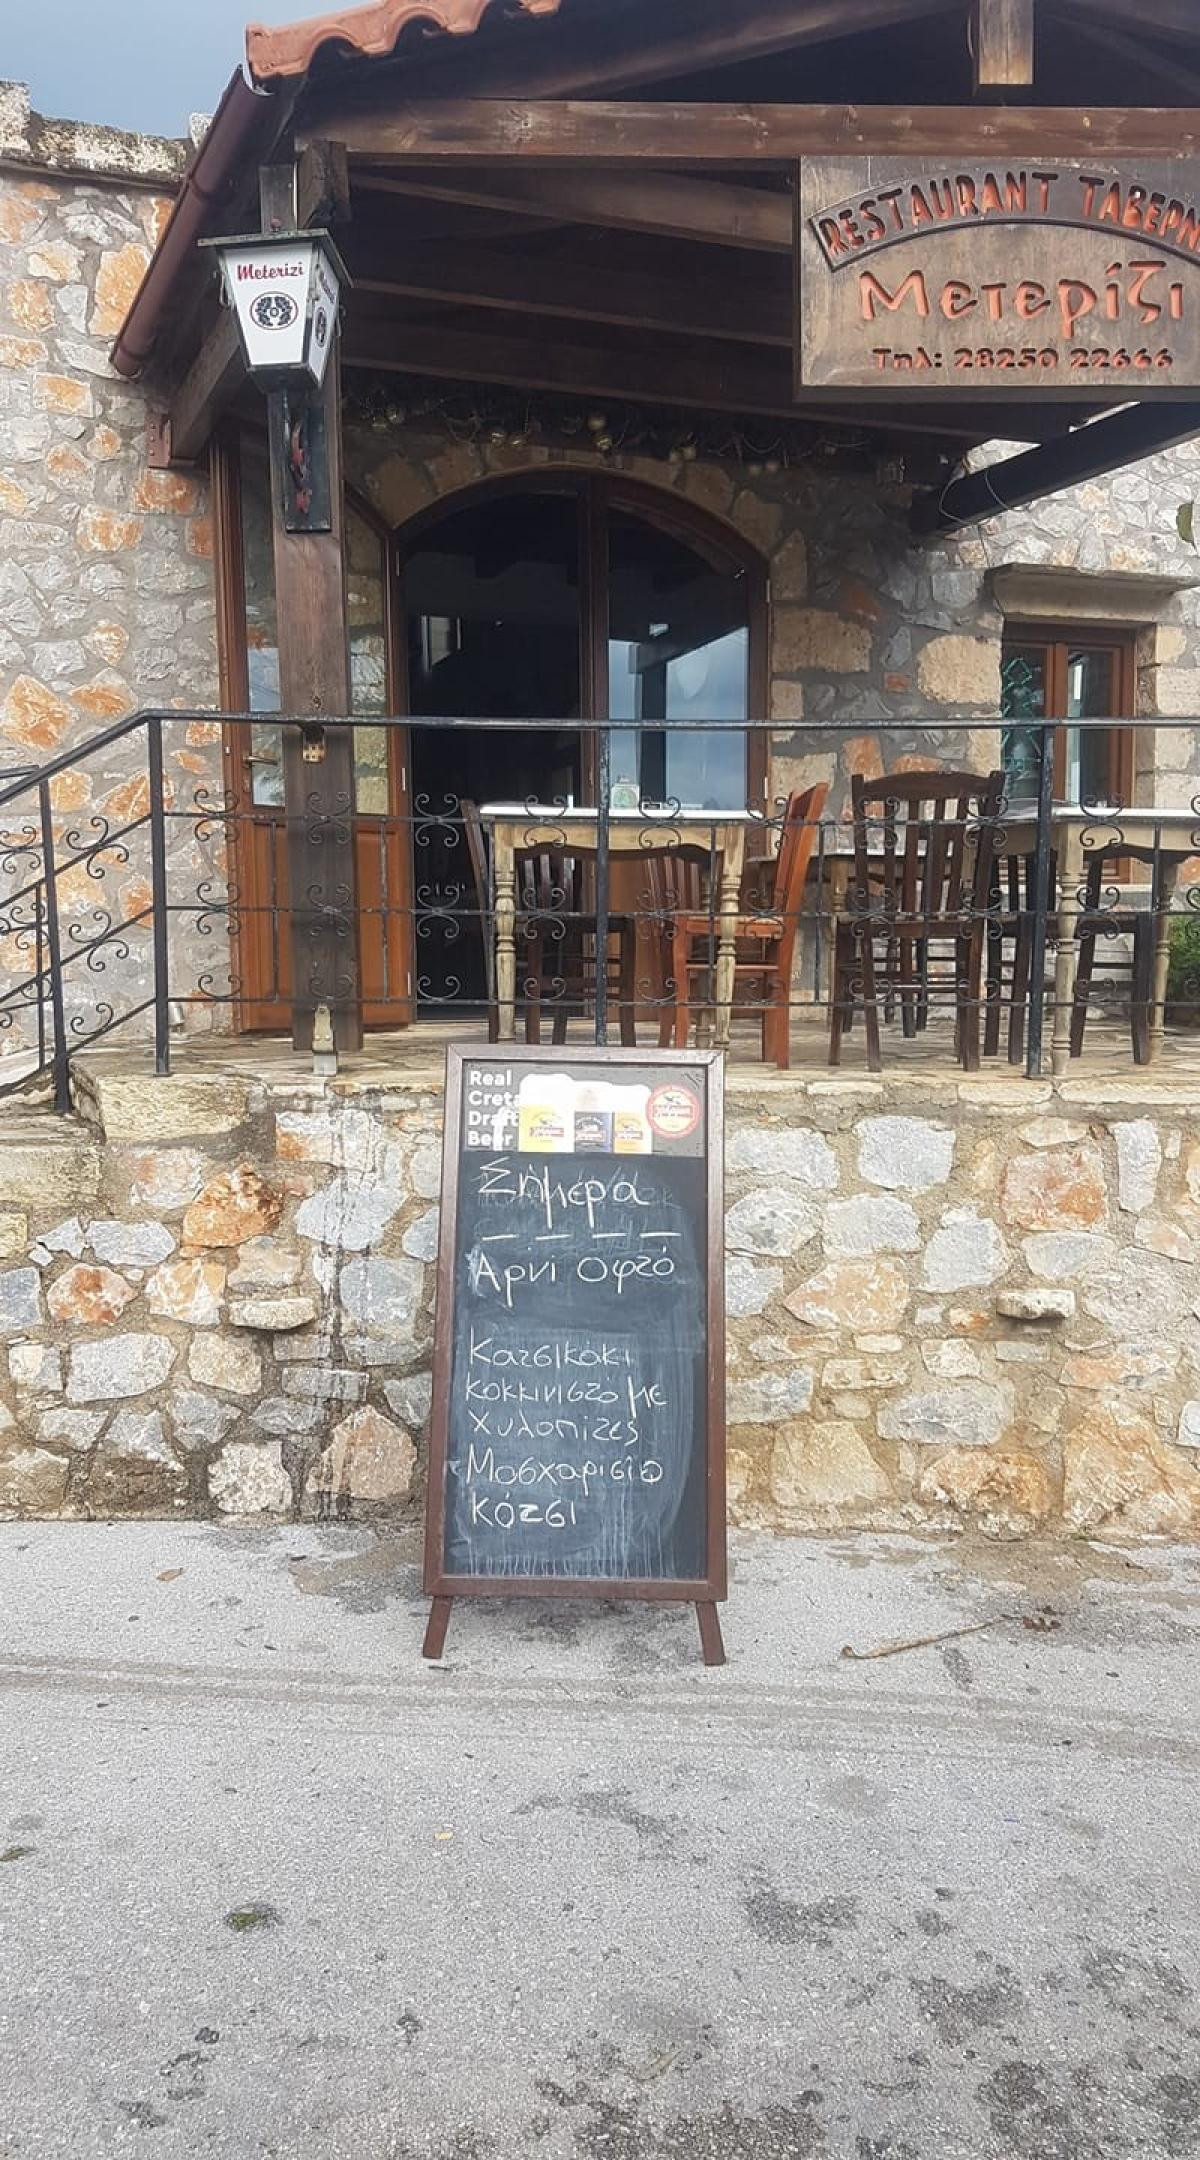 RESTAURANT ΤΑΒΕΡΝ
Μετερίζι
Τηλ: 28250 22666
Meterizi
Real
Creta
Draft
Beer
Σήμερα
Αρνί οφτό
Κατσικάκι
κοκκινιστό με
χυλοπίτες
Μοσχαρίσιο
κότσι